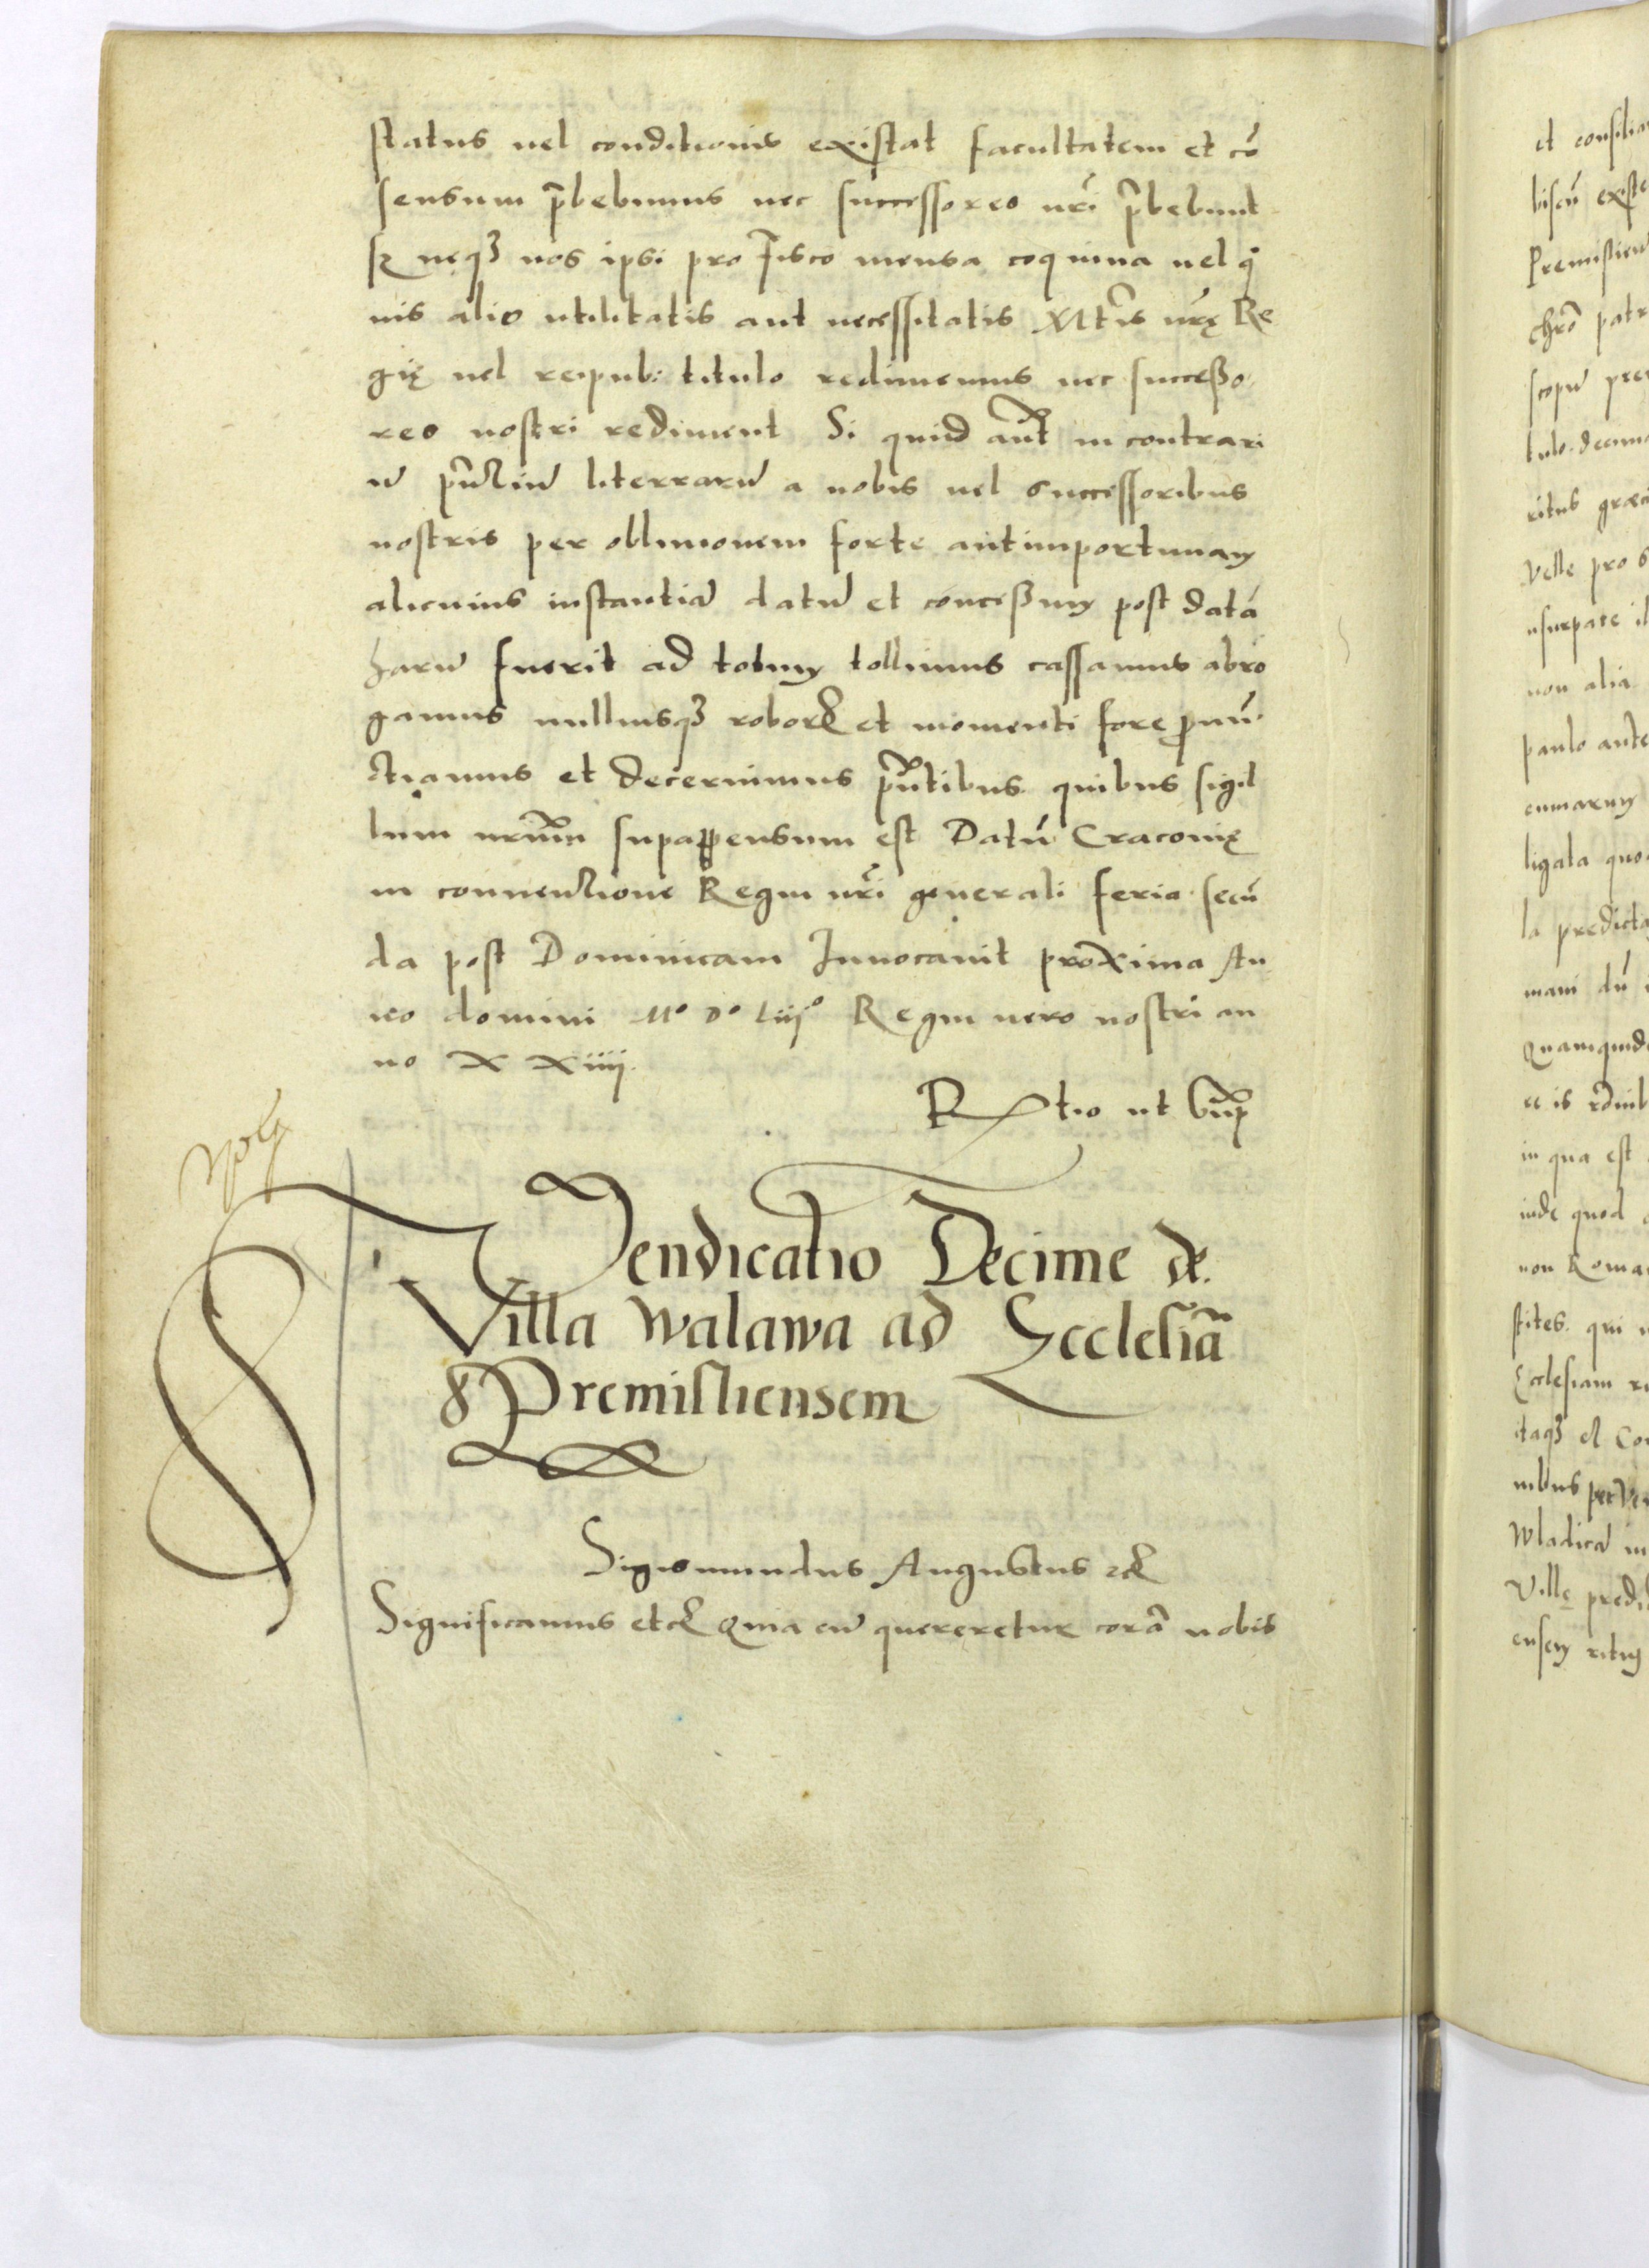 status uel conditionis existat facultatem et cō
sensum p̄bebimus nec successores nr̄i p̄bebunt
sꝫ neqꝫ nos ipsi pro fisco mensa coquina uel q̄
uis alio utilitatis aut necessitatis Mt̄is nr̄ę Re
gię uel reipub: titulo redimemus nec succeßo
res nostri rediment Si quid aūt in contrari
ū pn̄tiū literrarū a nobis uel successoribus
nostris per obliuionem forte aut importunam
alicuius instantiā datū et conceßum post datā
harū fuerit ad totum tollimus cassamus abro
gamus nulliusqꝫ roboris et momenti fore pronū
ctiamus et decernimus pn̄tibus quibus sigil
lum nrūm supappensum est Datū Cracouię
in conuentione Regni nr̄i generali feria secū
da post Dominicam Inuocauit proxima An
no domini Mº Dº Liiijº Regni uero nostri an
no XXiiij.
R tio ut sup̄
Vendicatio Decime de
Villa Walawa ad Ecclesiā
Premisliensem
Sigismundus Augustus etc̄
Significamus etc̄ Quia cū quereretur corā nobis
et consilia
biscū existe
Premislien
chrō patr
scopū pre
tulo decima
ritus græci
Velle pro s
usurpare il
non alia
paulo ante
cimarum
ligata quo
la predicta
mani dū
Quamquid
in qua est
inde quod
non Roma
stites qui
Ecclesiam
itaqꝫ et Con
Wladicā in
Villę predi
ensem ritus